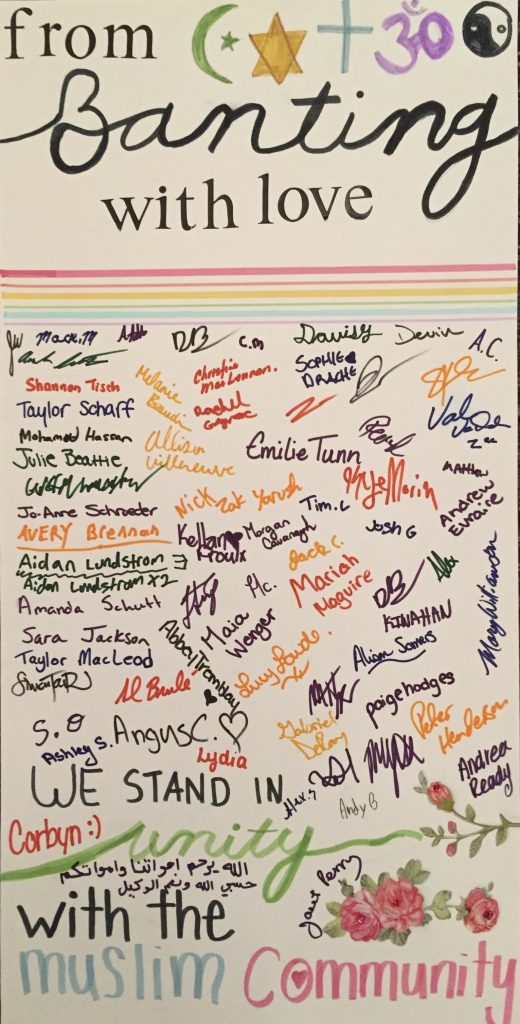 from
Banting
with love
ॐ
Mack.M
DB
C.M
Davisy
Devin
A.C.
Shannon Tisch
Melanie
Christie
MacLennan.
SOPHIE
DRACHE
Taylor Scharf
Rachel
Mohamed Hassan
Allison
Villeneuve
Emilie Tunn
Pearl
Val
Julie Beattie
Kye Morin
Jo-Anne Schroeder
Nick
Zak Yarush
Tim.L
Josh G
Andrew
Emaire
AVERY Brennan
Kellan
Proulx
Morgan
Cavanagh
Jack C.
Aidan Lundstrom
Aidan Lundstrom X2
Mc.
Mariah
Maguire
DB
Amanda Schutt
KINAHAN
Maia
Wenger
Sara Jackson
Abbey Tremblay
Alison Somers
Taylor MacLeod
paige hodges
S.O
Angus C.
Gabriel
Delany
Peter
Henderson
Ashley S.
Lydia
Andrea
Ready
WE STAND IN
Alex.S
Andy B
Corbyn :)
unity
الله يرحم إخواتنا وامواتكم
حسبي الله ونعم الوكيل
Janet Perry
with the
muslim Community